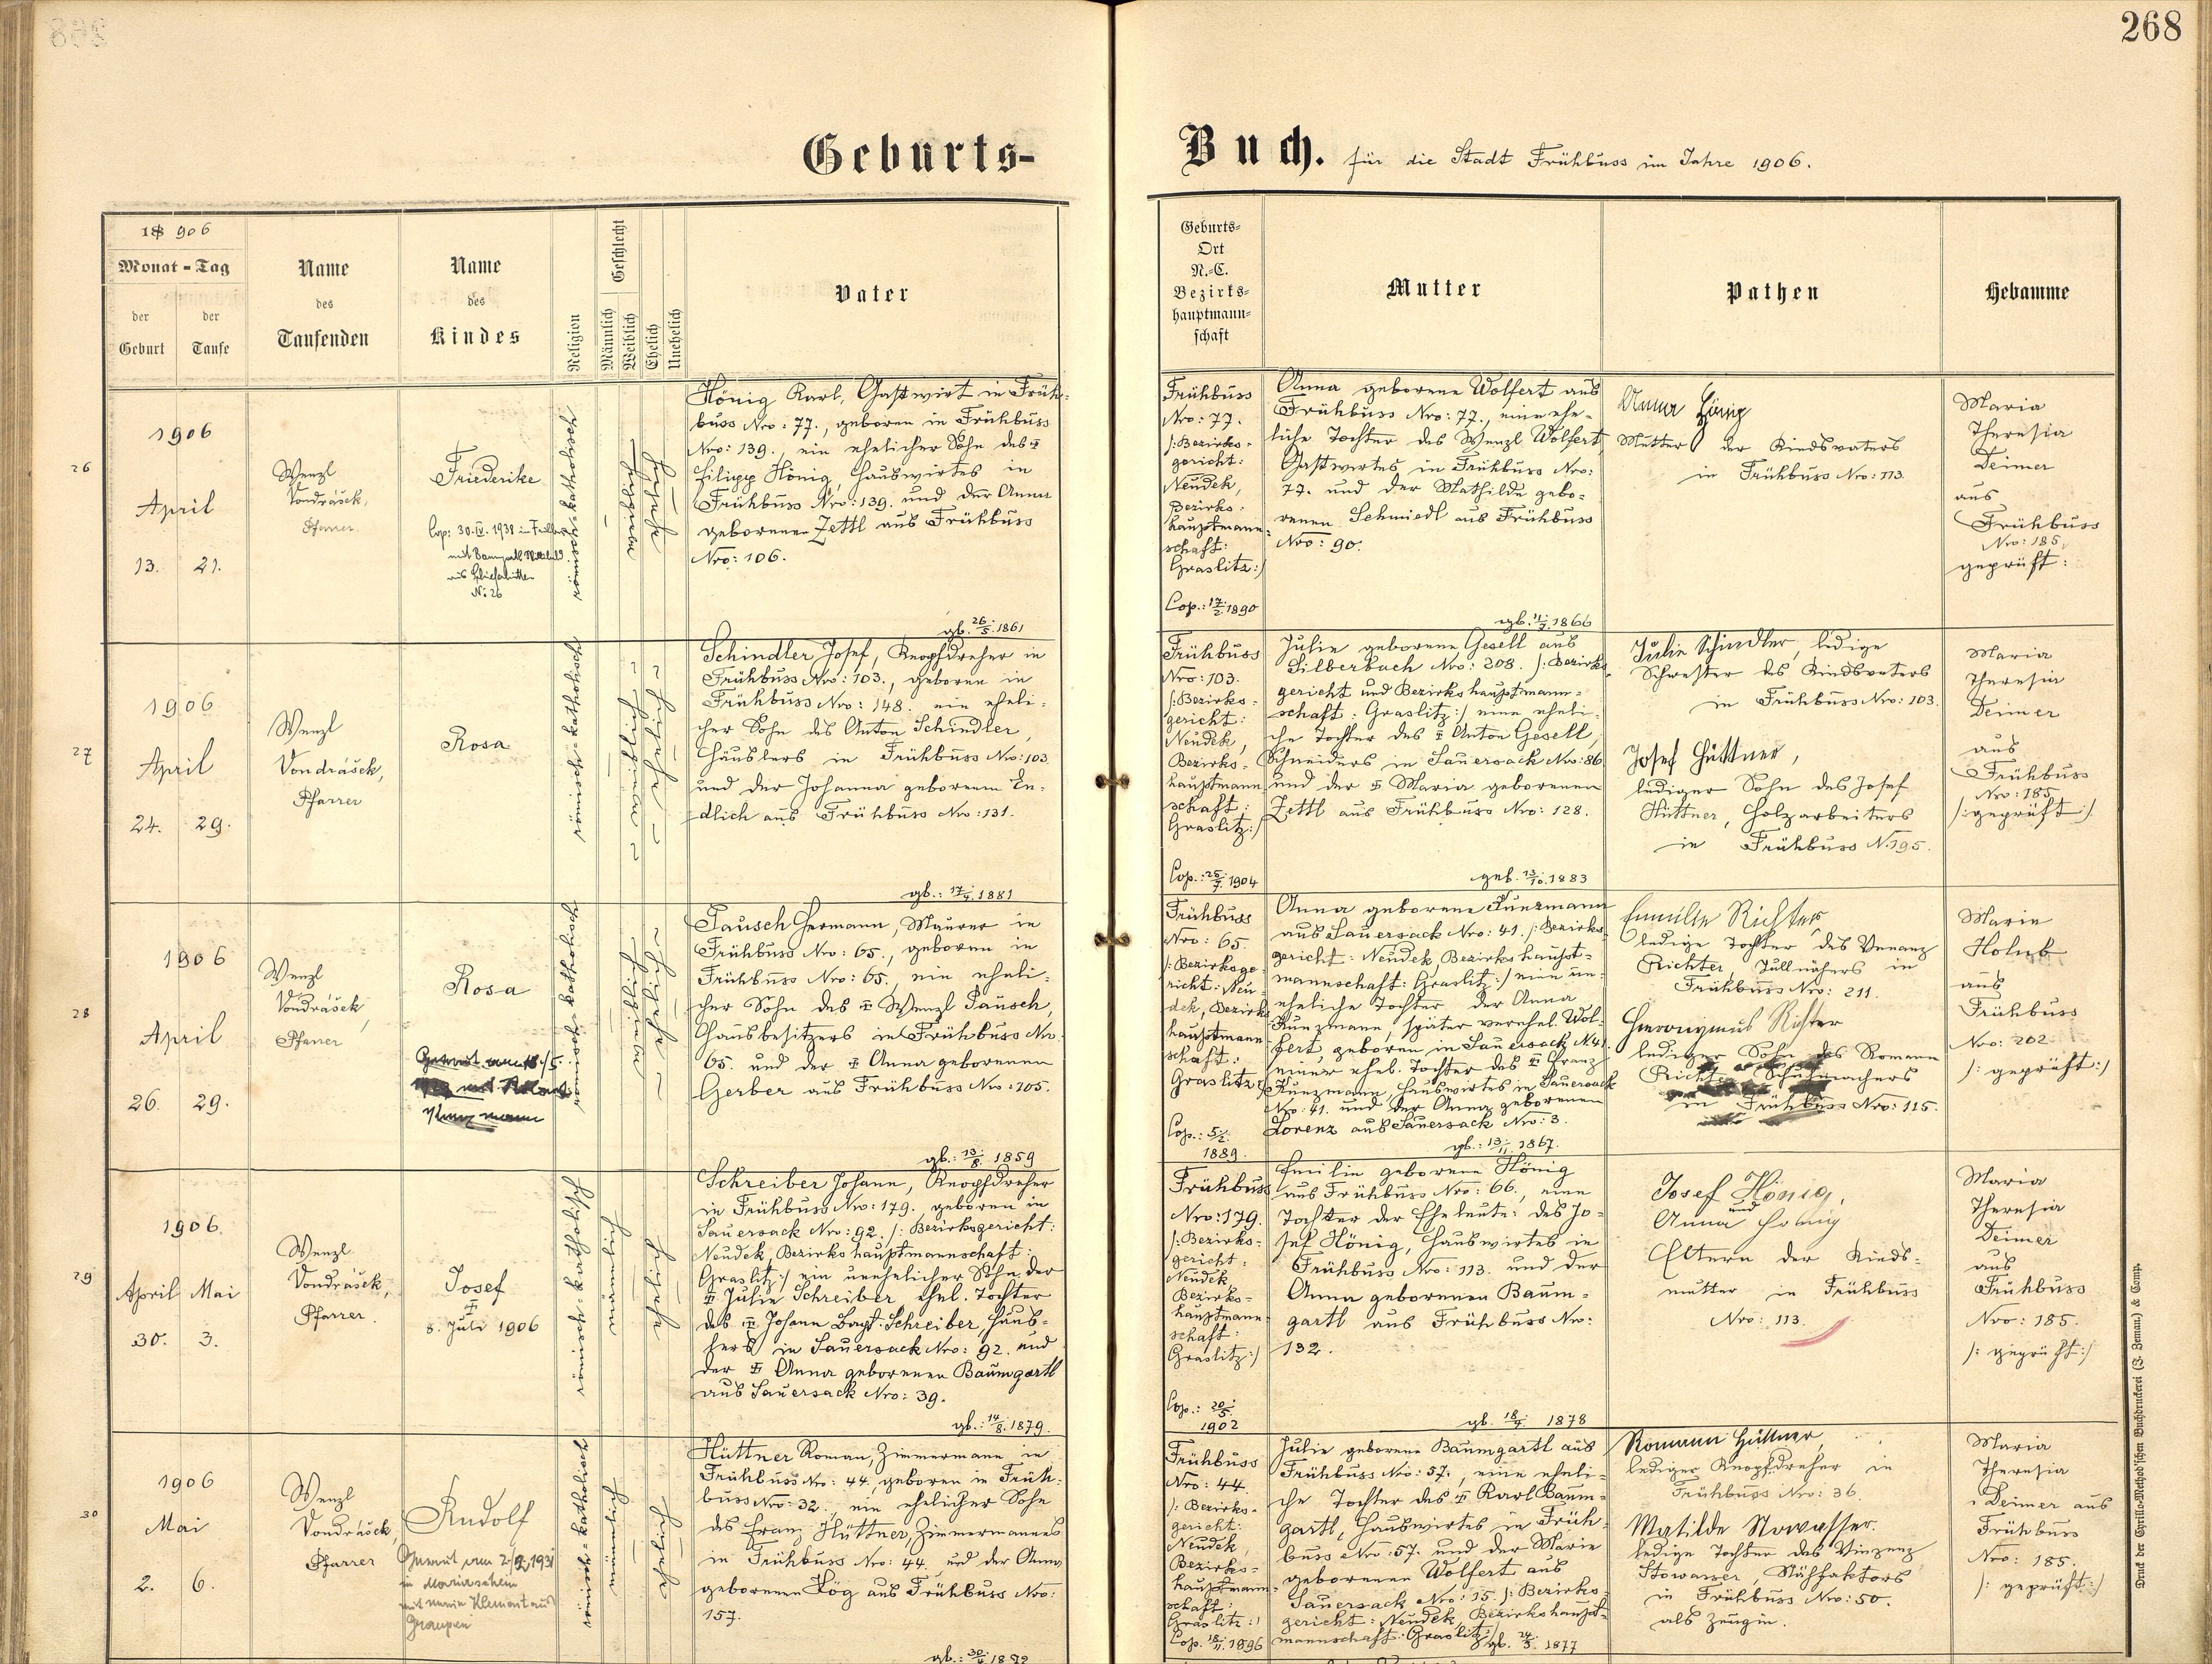 268
Geburts-
Buch. für die Stadt Frühbuss im Jahre 1906.
18 906
Monat - Tag
der Geburt
der Taufe
Name des Taufenden
Name des Kindes
Religion
Geschlecht
Männlich
Weiblich
Ehelich
Unehelich
Vater
Geburts-
Ort
N.-C.
Bezirks-
hauptmann-
schaft
Mutter
Pathen
Hebamme
26
1906
April
13. 21.
Wenzl
Vondrášek,
Pfarrer.
Friederike
Cop: 30.IV. 1938 in
N: 26
römisch-katholisch
König Karl, Gastwirt in Früh-
buss Nro: 77., geboren in Frühbuss
Nro: 139., ein ehelicher Sohn des
Filipp König, Hauswirtes in
Frühbuss Nro: 139. und der Anna
geborenen Zettl aus Frühbuss
Nro: 106.
gb. 26/5. 1861
Frühbuss
Nro: 77.
/: Bezirks-
gericht:
Neudek,
Bezirks-
hauptmann-
schaft:
Graslitz:/
Cop.: 17/2. 1890
Anna geborene Wolfert aus
Frühbuss Nro: 77., eine ehe-
liche Tochter des Wenzl Wolfert,
Gastwirtes in Frühbuss Nro:
77. und der Mathilde gebo-
renen Schmiedl aus Frühbuss
Nro: 90.
1866
Anna König
Mutter des Kindsvaters
in Frühbuss Nro: 113.
Maria
Theresia
Deimer
aus
Frühbuss
Nro: 185,
geprüft:
27
1906
April
24. 29.
Wenzl
Vondrášek,
Pfarrer
Rosa
römisch-katholisch
Schindler Josef, Knopfdreher in
Frühbuss Nro: 103., geboren in
Frühbuss Nro: 148. ein eheli-
cher Sohn des Anton Schindler,
Häuslers in Frühbuss Nro: 103.
und der Johanna geborenen En-
dlich aus Frühbuss Nro: 131.
gb.: 17/4. 1881
Frühbuss
Nro: 103.
/: Bezirks-
gericht:
Neudek,
Bezirks-
hauptmann-
schaft:
Graslitz:/
Cop.: 25/7. 1904
Julie geborene Gesell aus
Silberbach Nro: 208. /: Bezirks-
gericht und Bezirkshauptmann-
schaft: Graslitz:/ eine eheli-
che Tochter des Anton Gesell,
Schneiders in Sauersack Nro: 86
und der Maria geborenen
Zettl aus Frühbuss Nro: 128.
geb. 13/10. 1883
Julie Schindler, ledige
Schwester des Kindsvaters
in Frühbuss Nro: 103.
Josef Hüttner,
lediger Sohn des Josef
Hüttner, Holzarbeiters
in Frühbuss N. 195.
Maria
Theresia
Deimer
aus
Frühbuss
Nro: 185
/: geprüft:/
28
1906
April
26. 29.
Wenzl
Vondrášek,
Pfarrer
Rosa
römisch-katholisch
Pausch Hermann, Maurer in
Frühbuss Nro: 65., geboren in
Frühbuss Nro: 65., ein eheli-
cher Sohn des Wenzl Pausch,
Hausbesitzers in Frühbuss Nr.
65. und der Anna geborenen
Gerber aus Frühbuss Nro: 105.
gb.: 13/8. 1859
Frühbuss
Nro: 65.
/: Bezirksge-
richt: Neu-
dek, Bezirks
hauptmann-
schaft:
Graslitz:/
Cop.: 5/2.
1889.
Anna geborene Kunzmann
aus Sauersack Nro: 41. /: Bezirks-
gericht: Neudek Bezirkshaupt-
mannschaft: Graslitz:/ eine un-
eheliche Tochter der Anna
Kunzmann, später verehel. Wol-
fert, geboren in Sauersack N. 41.
einer ehel. Tochter des Franz
Kunzmann, Hauswirtes in Sauersack
Nro: 41. und der Anna geborenen
Lorenz aus Sauersack Nro: 3.
gb.: 13/11. 1867.
Emilie Richter,
ledige Tochter des Venanz
Richter, Tüllnähers in
Frühbuss Nro: 211.
Hieronymus Richter
lediger Sohn des Romann
Richter Schuhmachers
in Frühbuss Nro: 115.
Marie
Holub
aus
Frühbuss
Nro: 202.
/: geprüft:/
29
1906.
April Mai
30. 3.
Wenzl
Vondrášek,
Pfarrer.
Josef
8. Juli 1906
römisch-katholisch
Schreiber Johann, Knopfdreher
in Frühbuss Nro: 179. geboren in
Sauersack Nro: 92. /: Bezirksgericht:
Neudek, Bezirkshauptmannschaft:
Graslitz:/ ein unehelicher Sohn der
Julie Schreiber ehel. Tochter
des Johann Bapt. Schreiber, Häus-
lers in Sauersack Nro: 92. und
der Anna geborenen Baumgartl
aus Sauersack Nro: 39.
gb.: 14/8. 1879.
Frühbuss
Nro: 179.
/: Bezirks-
gericht:
Neudek,
Bezirks-
hauptmann-
schaft:
Graslitz:/
Cop.: 20/5.
1902
Emilie geborene König
aus Frühbuss Nro: 66., eine
Tochter der Eheleute: des Jo-
sef König, Hauswirtes in
Frühbuss Nro: 113. und der
Anna geborenen Baum-
gartl aus Frühbuss Nro:
132.
1878
Josef König,
und
Anna König
Eltern der Kinds-
mutter in Frühbuss
Nro: 113.
Maria
Theresia
Deimer
aus
Frühbuss
Nro: 185.
/: geprüft:/
30
1906
Mai
2. 6.
Wenzl
Vondrášek,
Pfarrer
Rudolf
in Mariaschein
mit Maria Klement aus
Graupen
römisch-katholisch
Hüttner Roman, Zimmermann in
Frühbuss Nro: 44., geboren in Früh-
buss Nro: 32., ein ehelicher Sohn
des Franz Hüttner, Zimmermannes
in Frühbuss Nro: 44. und der Anna
geborenen Lög aus Frühbuss Nro:
157.
Frühbuss
Nro: 44.
/: Bezirks-
gericht:
Neudek,
Bezirks-
hauptmann-
schaft:
Graslitz:/
Cop. 18/11. 1896
Julie geborene Baumgartl aus
Frühbuss Nro: 57., eine eheli-
che Tochter des Karl Baum-
gartl, Hauswirtes in Früh-
buss Nro: 57. und der Marie
geborenen Wolfert aus
Sauersack Nro: 15. /: Bezirks-
gericht: Neudek, Bezirkshaupt-
mannschaft: Graslitz:/
gb. 24/3. 1877
Romann Hüttner,
lediger Knopfdreher in
Frühbuss Nro: 36.
Matilde Stowasser.
ledige Tochter des Vinzenz
Stowasser, Nähfaktors
in Frühbuss Nro: 50.
als Zeugin.
Maria
Theresia
Deimer aus
Frühbuss
Nro: 185.
/: geprüft:/
Druck der Cyrillo-Method'schen Buchdruckerei (J. Zeman) & Comp.